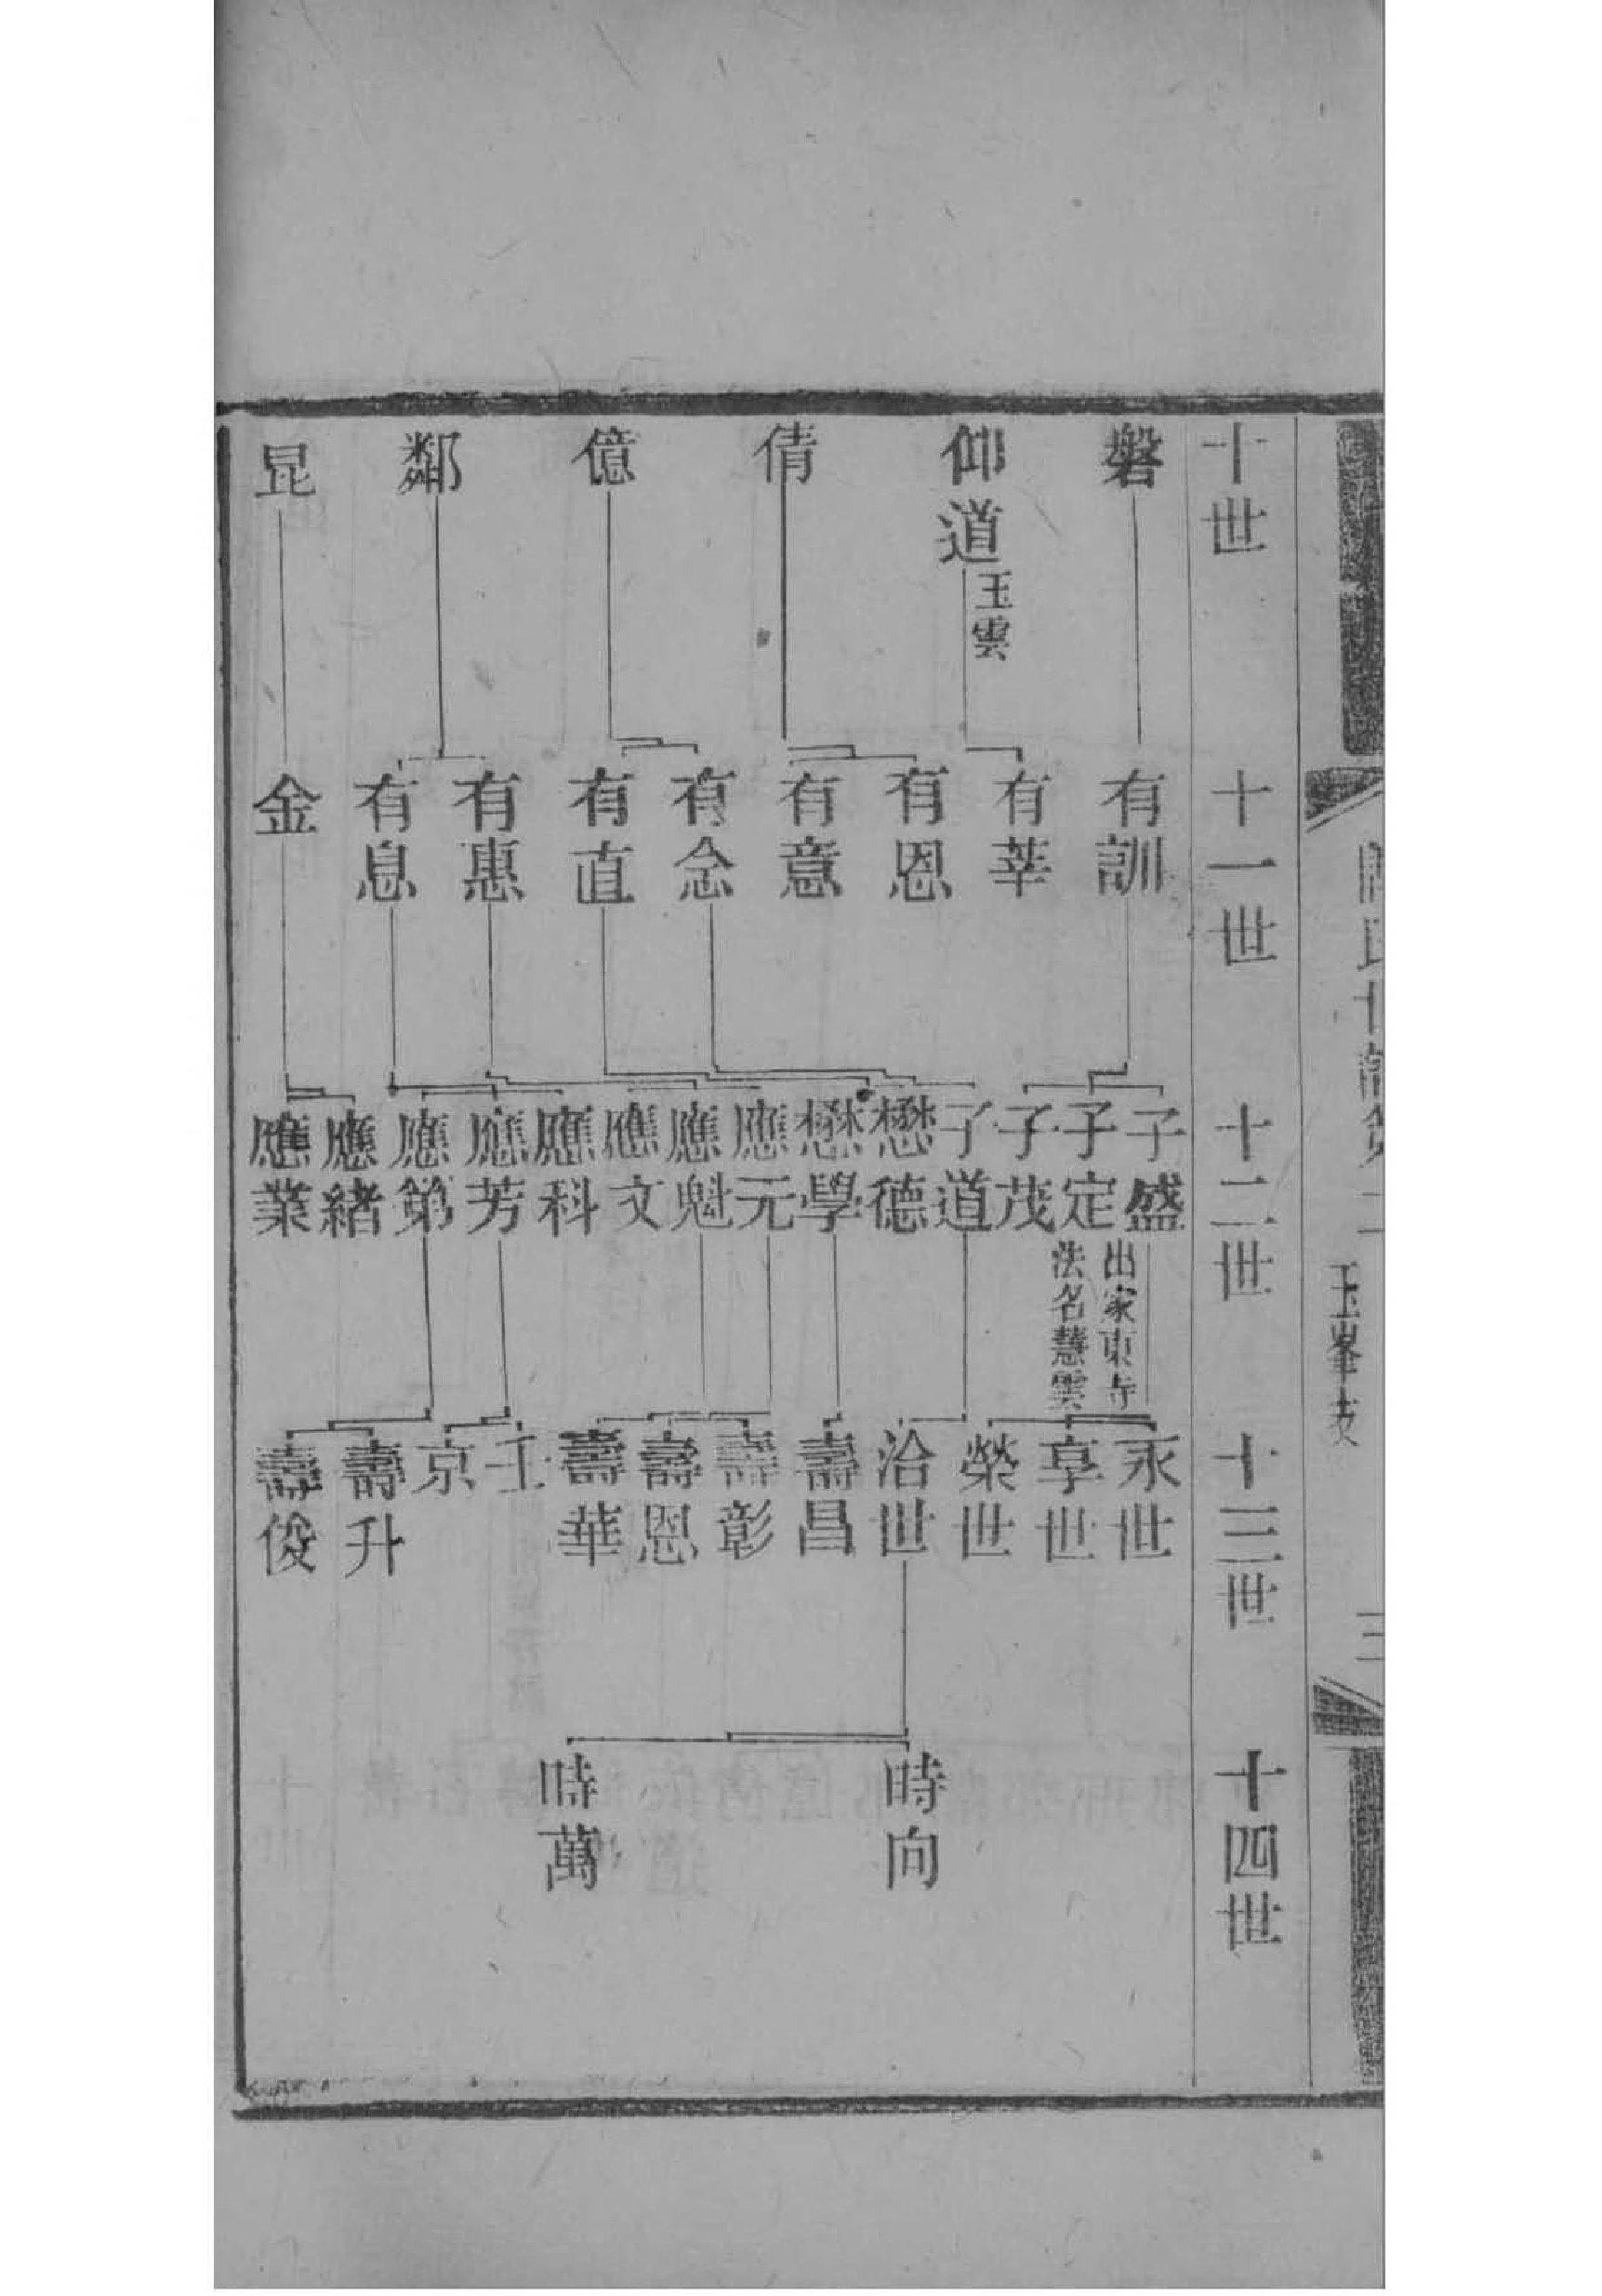 二
玉峯支
三
十世
磐
仰道
玉雲
倩
億
鄰
昆
十一世
有訓
有莘
有恩
有意
有念
有直
有惠
有息
金
十二世
子盛
出家東寺
法名慧雲
子定
子茂
子道
懋德
懋學
應元
應魁
應文
應科
應芳
應第
應緒
應業
十三世
永世
享世
榮世
洽世
壽昌
壽彰
壽恩
壽華
壬
京
壽升
壽俊
十四世
時向
時萬